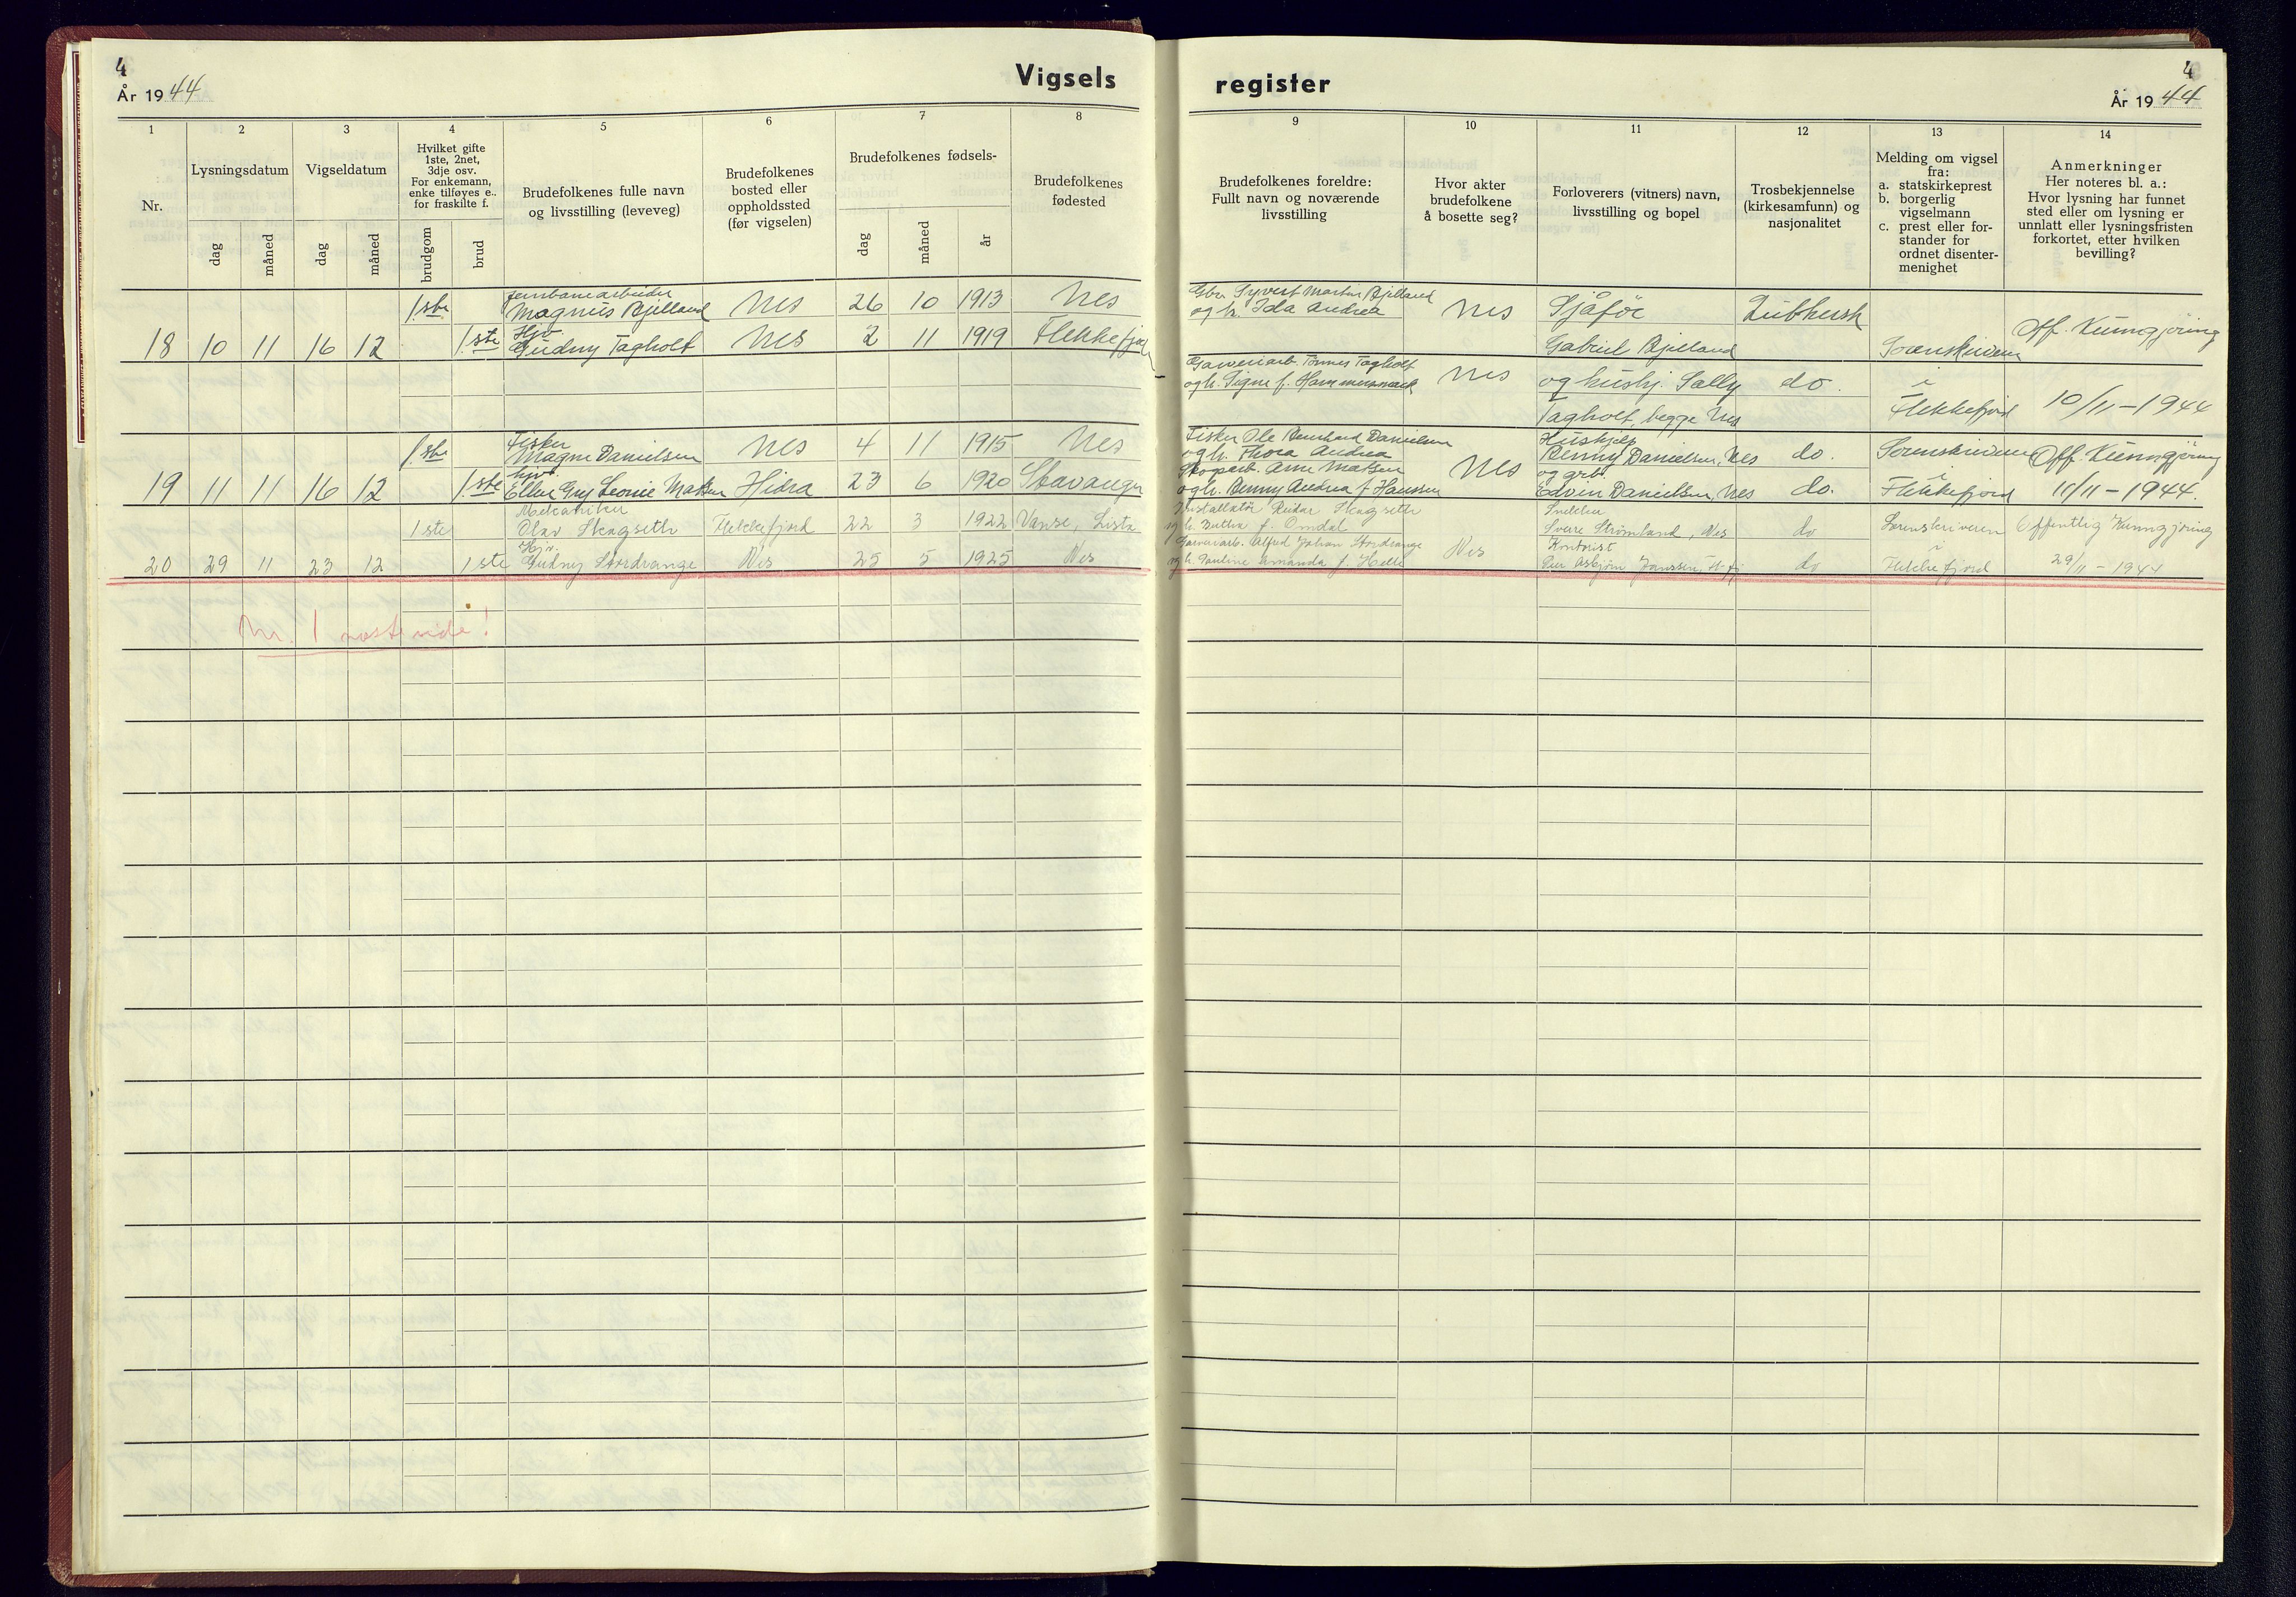 4
År 1944
Vigsels
1
2
3
4
5
6
7
8
Nr.
Lysningsdatum
Vigseldatum
Hvilket gifte
1ste, 2net,
3dje osv.
For enkemann,
enke tilføyes e..
for fraskilte f.
Brudefolkenes fulle navn
og livsstilling (leveveg)
Brudefolkenes
bosted eller
oppholdssted
(før vigselen)
Brudefolkenes fødsels-
Brudefolkenes
fødested
dag
måned
dag
måned
brudgom
brud
dag
måned
år
jernbanearbeider
1ste Magnus Bjelland Nes 26 10 1913 Nes
Hjv.
18 10 11 16 12 1ste Gudny Tagholt Nes 2 11 1919 Flekkefjord
Fisker
1ste Magne Danielsen Nes 4 11 1915 Nes
hjv.
19 11 11 16 12 1ste Ellen Gry Leonie Matsen Hidra 23 6 1920 Stavanger
Mekaniker
1ste Olav Skagseth Flekkefjord 22 3 1922 Vanse, Lista
Hjv.
20 29 11 23 12 1ste Gudny Stordrange Nes 25 5 1925 Nes
Nr. 1 næste side!
register
4
År 1944
9
10
11
12
13
14
Brudefolkenes foreldre:
Fullt navn og noværende
livsstilling
Hvor akter
brudefolkene
å bosette seg?
Forloverers (vitners) navn,
livsstilling og bopel
Trosbekjennelse
(kirkesamfunn) og
nasjonalitet
Melding om vigsel
fra:
a. statskirkeprest
b. borgerlig
vigselmann
c. prest eller for-
stander for
ordnet disenter-
menighet
Anmerkninger
Her noteres bl. a.:
Hvor lysning har funnet
sted eller om lysning er
unnlatt eller lysningsfristen
forkortet, etter hvilken
bevilling?
Gbr. Syvert Martin Bjelland
og h. Ida Andrea
Nes
Sjåfør
Gabriel Bjelland
Luthersk
Sorenskriveren
Off. Kunngjøring
Garveriarb. Tønnes Tagholt
og h. Signe f. Hammersmark
Nes
og hushj. Sally
Tagholt, begge Nes
do.
i
Flekkefjord
10/11-1944
Fisker Ole Bernhard Danielsen
og h. Thora Andrea
Skogarb. Arne Matsen
og h. Benny Andrea f. Hanssen
Nes
Hushjelp
Benny Danielsen, Nes
og arb.
Edvin Danielsen, Nes
do.
do.
Sorenskriveren
i
Flekkefjord
Off. Kunngjøring
11/11-1944.
Installatør Reidar Skagseth
og h. Buthia f. Omdal
Garveriarb. Alfred Johan Stordrange
og h. Pauline Amanda f. Helle
Nes
Snekker
Sverre Strømland, Nes
Kontorist
Per Asbjørn Janssen, Fl.fj
do
do
Sorenskriveren
i
Flekkefjord
Offentlig Kunngjøring
29/11-1944